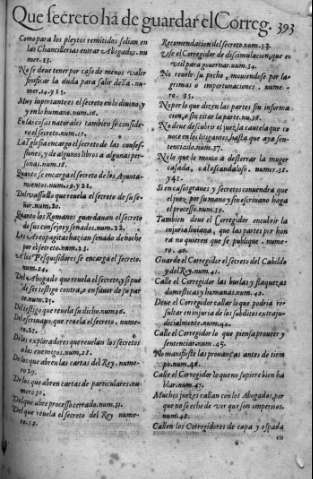 Que secreto há de guardar el Correg. 393
Como para los pleytos remitidos salian en
las Chancillerias entrar Abogados. nu
mer. 13.
No se deue tener por caso de menos valer
justificar la duda para salir della. nu-
mer. 14. y 15.
Muy importante es el secreto en lo diuino, y
y en lo humano. num. 16.
En las cosas naturales tambien se conside-
ra el secreto. num. 17.
La Iglesia encarga el secreto de las confes-
siones, y de algunos libros a algunas per-
sonas. num. 18.
Quanto se encarga el secreto de los Ayunta-
mientos. num. 19. y 22.
Del vassallo que reuela el secreto de su se-
ñor. num. 20.
Quanto los Romanos guardauan el secreto
de sus consejos y senados. num. 22.
Los Areopagitas hazian senado de noche
por el secreto. num. 23.
A los Pesquisidores se encarga el secreto.
num. 24.
Del Abogado que reuela el secreto, y si pue
de ser testigo contra, o en fauor de su par
te. num. 25.
Del testigo que reuela su dicho. num. 26.
Del escriuano, que reuela el secreto. nume-
ro. 27.
De los exploradores que reuelan los secretos
a los enemigos. num. 28.
De los que abren las cartas del Rey. nume-
ro 29.
De los que abren cartas de particulares. nu
mero 30.
Del que abre processo cerrado. num. 31.
Del que reuela el secreto del Rey nume-
ro. 32.
Recomendacion del secreto. num. 33.
Use el Corregidor de disimulacion, que es
vtil para gouernar. num. 34.
No reuele su pecho, mouiendose por la-
grimas o importunaciones. nume-
ro. 35.
Ni por lo que dizen las partes sin informa
cion, o sin citar la parte. nu. 36.
No diue descubrir el juez la cautela que co
noce en los litigantes, hasta que aya sen-
tenciado. num. 37.
Ni lo que le mouio a desterrar la muger
casada, callesandolase. numer. 38.
y 41.
Si en casos graues y secretos conuendra que
el juez por su mano y sin escriuano haga
el processo. num. 39.
Tambien deue el Corregidor encubrir la
injuria liuiana, que las partes por hon
ra no quieren que se publique. nume-
ro. 40.
Guarde el Corregidor el secreto del Cabildo
y del Rey. num. 41.
Calle el Corregidor las burlas y flaquezas
domesticas y humanas. num. 42.
Deue el Corregidor callar lo que podria re-
sultar en injuria de los subditos extraju-
dicialmente. num. 44.
Calle el Corregidor lo que piensa prouer y
sentenciar. num. 45.
No manifieste las prouanças antes de tiem
po. num. 46.
Calle el Corregidor lo que no supiere bien ha
blar. num. 47.
Muchos juezes callan con los Abogados, por
que no se eche de ver que son imperitos.
num. 48.
Callen los Corregidores de capa y espada
en